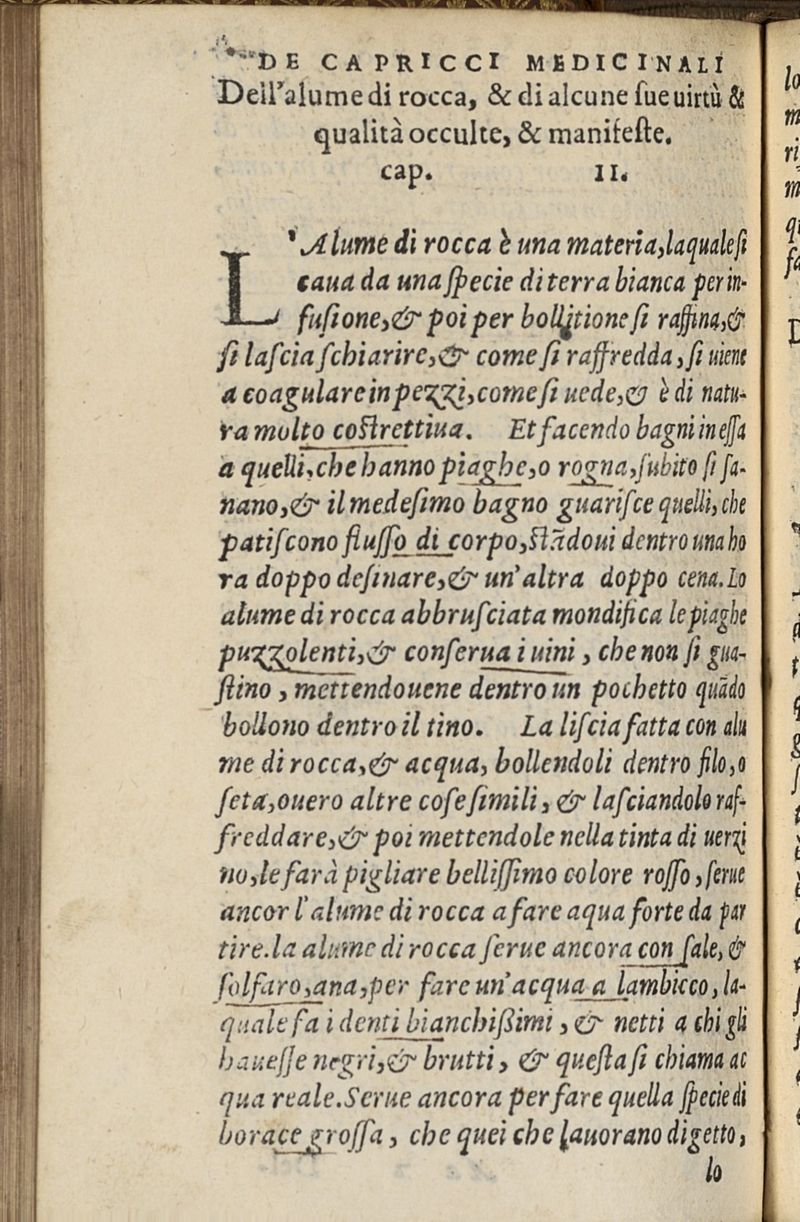 DE CAPRICCI MEDICINALI
Dell'alume di rocca, & di alcune ſue uirtù &
qualità occulte, & manifeſte.
cap. 11.
L'Alume di rocca è una materia, laquale ſi
caua da una ſpecie di terra bianca per in-
fuſione, & poi per bollitione ſi raffina, &
ſi laſcia ſchiarire, & come ſi raffredda, ſi uiene
a coagulare in pezzi, come ſi uede, & è di natu-
ra molto coſtrettiua. Et facendo bagni in eſſa
a quelli, che hanno piaghe, o rogna, ſubito ſi ſa-
nano, & il medeſimo bagno guariſce quelli, che
patiſcono fluſſo di corpo, ſtãdoui dentro una ho
ra doppo deſinare, & un'altra doppo cena. Lo
alume di rocca abbruſciata mondifica le piaghe
puzzolenti, & conſerua i uini, che non ſi gua-
ſtino, mettendouene dentro un pochetto quãdo
bollono dentro il tino. La liſcia fatta con alu
me di rocca, & acqua, bollendoli dentro filo, o
ſeta, ouero altre coſe ſimili, & laſciandolo raf-
freddare, & poi mettendole nella tinta di uerzi
no, le farà pigliare belliſſimo colore roſſo, ſerue
ancor l'alume di rocca a fare aqua forte da par
tire. la alume di rocca ſerue ancora con ſale, &
ſolfaro, ana, per fare un'acqua a lambicco, la-
quale fa i denti bianchißimi, & netti a chi gli
haueſſe negri, & brutti, & queſta ſi chiama ac
qua reale. Serue ancora per fare quella ſpecie di
borace groſſa, che quei che lauorano di getto,
lo